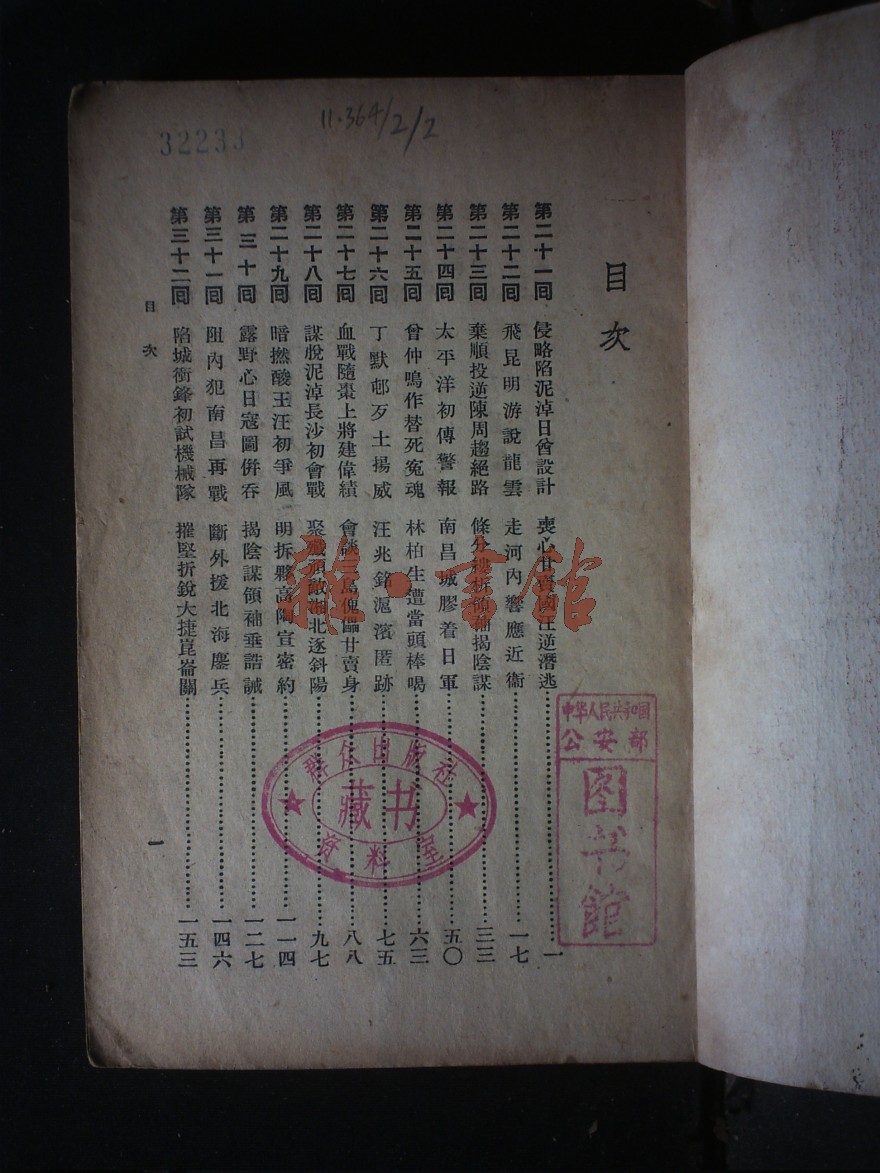 11.364/2/2
32233
目次
第二十一回 侵略陷泥淖日酋設計 喪心甘賣國汪逆潛逃 一
第二十二回 飛昆明游說龍雲 走河內響應近衞 一七
第二十三回 棄順投逆陳周趨絕路 條分縷析領袖揭陰謀 三三
第二十四回 太平洋初傳警報 南昌城膠着日軍 五〇
第二十五回 曾仲鳴作替死冤魂 林柏生遭當頭棒喝 六三
第二十六回 丁默邨歹土揚威 汪兆銘滬濱匿跡 七五
第二十七回 血戰隨棗上將建偉績 會議三島傀儡甘賣身 八八
第二十八回 謀脫泥淖長沙初會戰 聚殲頑敵湘北逐斜陽 九七
第二十九回 暗撚酸王汪初爭風 明拆夥高陶宣密約 一一四
第三十回 露野心日寇圖併吞 揭陰謀領袖垂誥誡 一二七
第三十一回 阻內犯南昌再戰 斷外援北海鏖兵 一四六
第三十二回 陷城衝鋒初試機械隊 摧堅折銳大捷崑崙關 一五三
目次
一
中华人民共和国
公安部
图书館
群众出版社
藏书
资料室
雜·書館